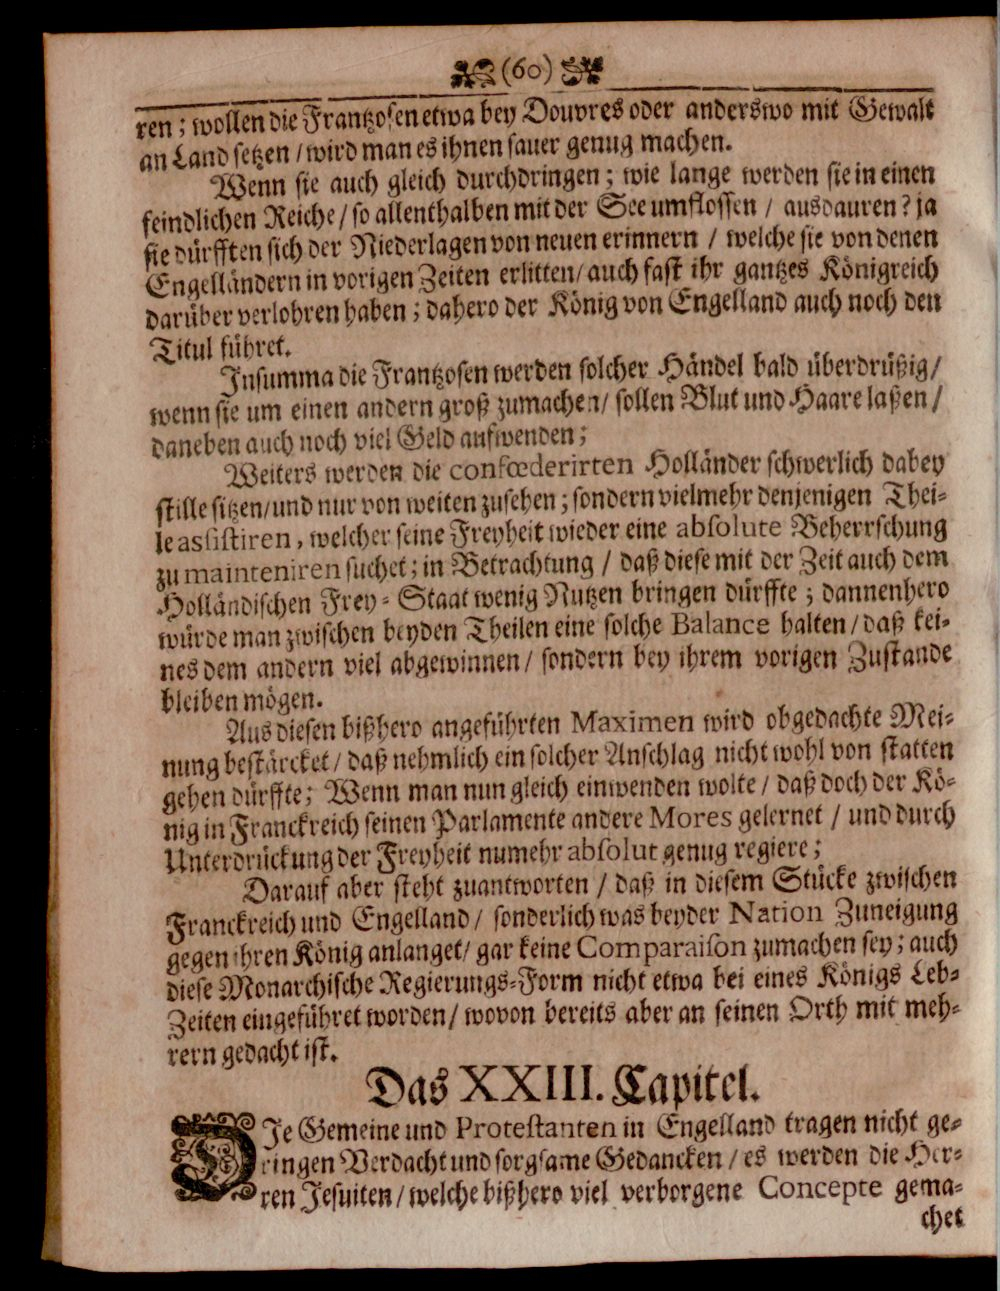 (60)
ren; wollen die Frantzosen etwa bey Douvres oder anderswo mit Gewalt
an Land setzen / wird man es ihnen sauer genug machen.
Wenn sie auch gleich durchdringen; wie lange werden sie in einen
feindlichen Reiche / so allenthalben mit der See umflossen / ausdauren? ja
sie dürfften sich der Niederlagen von neuen erinnern / welche sie von denen
Engelländern in vorigen Zeiten erlitten / auch fast ihr gantzes Königreich
darüber verlohren haben; dahero der König von Engelland auch noch den
Titul führet.
Insumma die Frantzosen werden solcher Händel bald überdrüßig /
wenn sie um einen andern groß zumachen / sollen Blut und Haare laßen /
daneben auch noch viel Geld aufwenden;
Weiters werden die confœderirten Holländer schwerlich dabey
stille sitzen / und nur von weiten zusehen; sondern vielmehr denjenigen Thei-
le assistiren, welcher seine Freyheit wieder eine absolute Beherrschung
zu mainteniren suchet; in Betrachtung / daß diese mit der Zeit auch dem
Holländischen Frey-Staat wenig Nutzen bringen dürffte; dannenhero
würde man zwischen beyden Theilen eine solche Balance halten / daß kei-
nes dem andern viel abgewinnen / sondern bey ihrem vorigen Zustande
bleiben mögen.
Aus diesen bißhero angeführten Maximen wird obgedachte Mei-
nung bestärcket / daß nehmlich ein solcher Anschlag nicht wohl von statten
gehen dürffte; Wenn man nun gleich einwenden wolte / daß doch der Kö-
nig in Franckreich seinen Parlamente andere Mores gelernet / und durch
Unterdrückung der Freyheit numehr absolut genug regiere;
Darauf aber steht zuantworten / daß in diesem Stücke zwischen
Franckreich und Engelland / sonderlich was beyder Nation Zuneigung
gegen ihren König anlanget / gar keine Comparaison zumachen sey; auch
diese Monarchische Regierungs-Form nicht etwa bei eines Königs Leb-
Zeiten eingeführet worden / wovon bereits aber an seinen Orth mit meh-
rern gedacht ist.
Das XXIII. Capitel.
DIe Gemeine und Protestanten in Engelland tragen nicht ge-
ringen Verdacht und sorgsame Gedancken / es werden die Her-
ren Jesuiten / welche bißhero viel verborgene Concepte gema-
chet